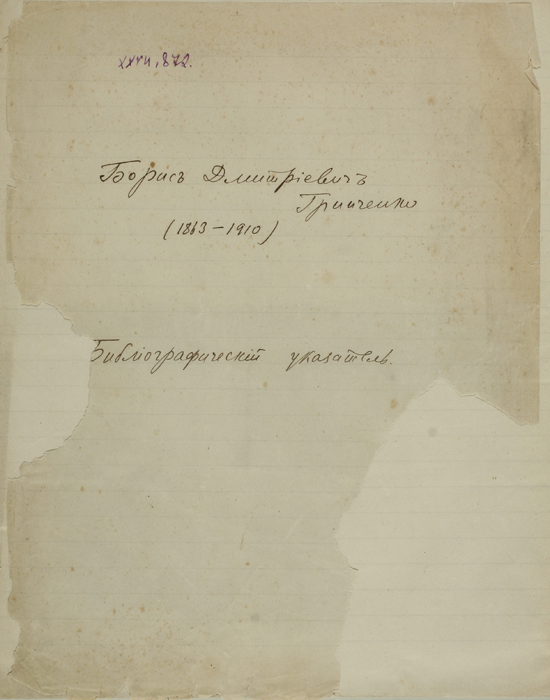 XXVII, 872.
Борисъ Дмитріевичъ
Гринченко
(1863–1910)
Библіографическій указатель.